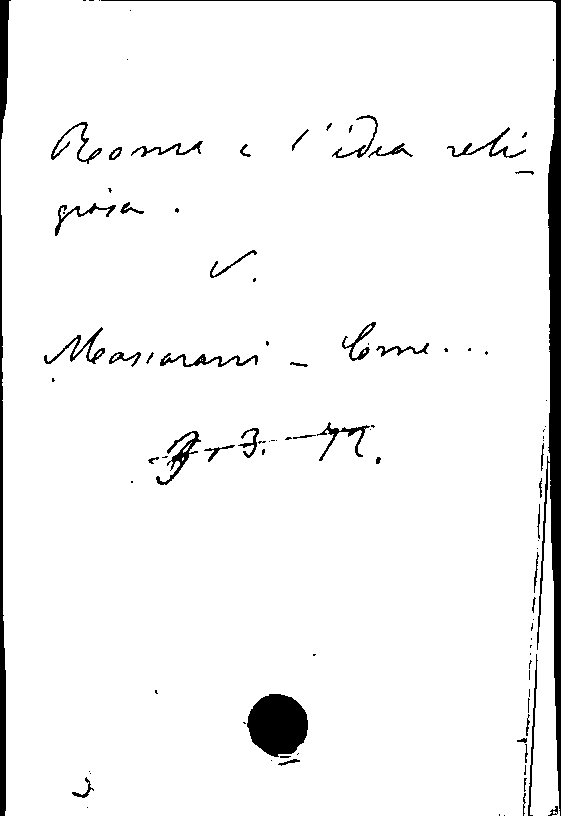 Roma e l'idea reli-
giosa.
V.
Massarani - Come...
3. 72.